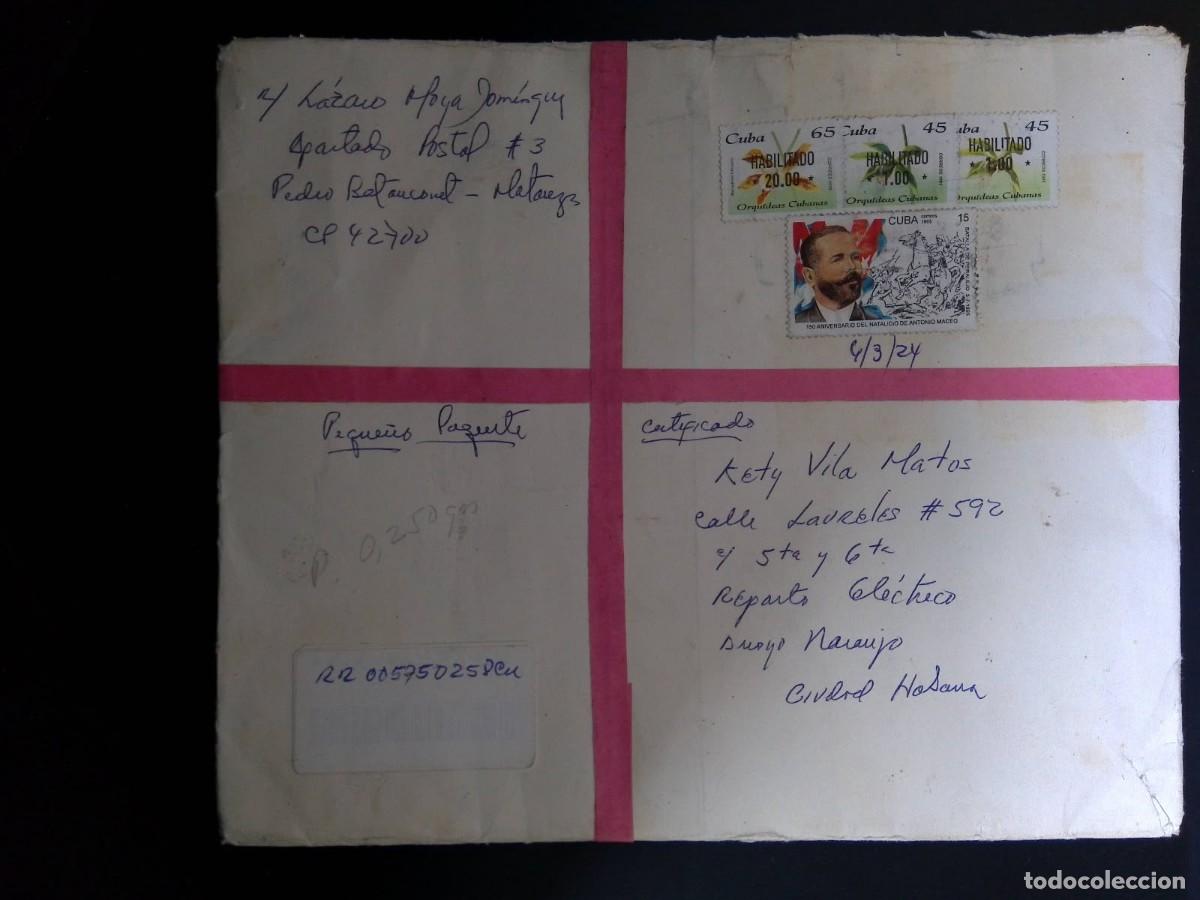 R/ Lázaro Moya Domínguez
Apartado Postal #3
Pedro Betancourt - Matanzas
CP 42700
Cuba 65
HABILITADO
20.00 *
Orquídeas Cubanas
Cuba 45
HABILITADO
* 1.00 *
Orquídeas Cubanas
uba 45
HABILITADO
* 1.00 *
Orquídeas Cubanas
CUBA correos 1995 15
BATALLA DE PERALEJO
150 ANIVERSARIO DEL NATALICIO DE ANTONIO MACEO
4/3/24
Pequeño Paquete
P. 0,250 grs
RR 005750258CU
Certificado
Kety Vila Matos
Calle Laureles #592
e/ 5ta y 6ta
Reparto Eléctrico
Arroyo Naranjo
Ciudad Habana
todocoleccion